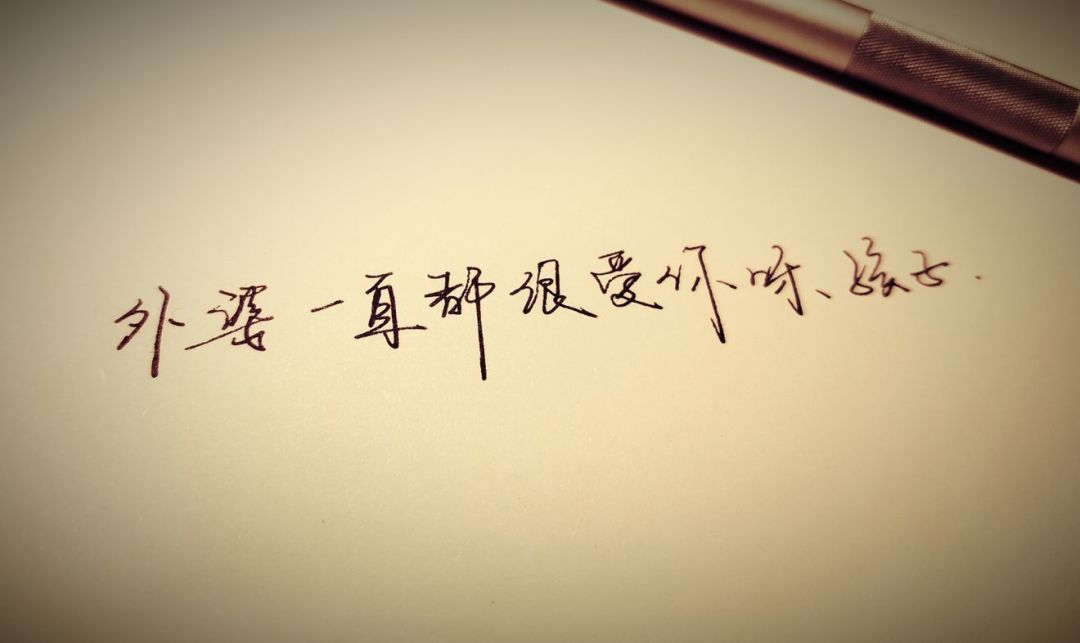 外婆一直都很爱你呀、孩子.